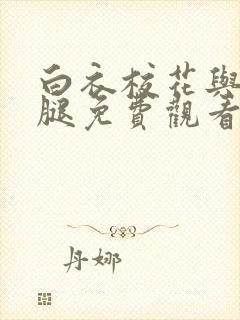 白衣校花與
腿免費觀看
丹娜